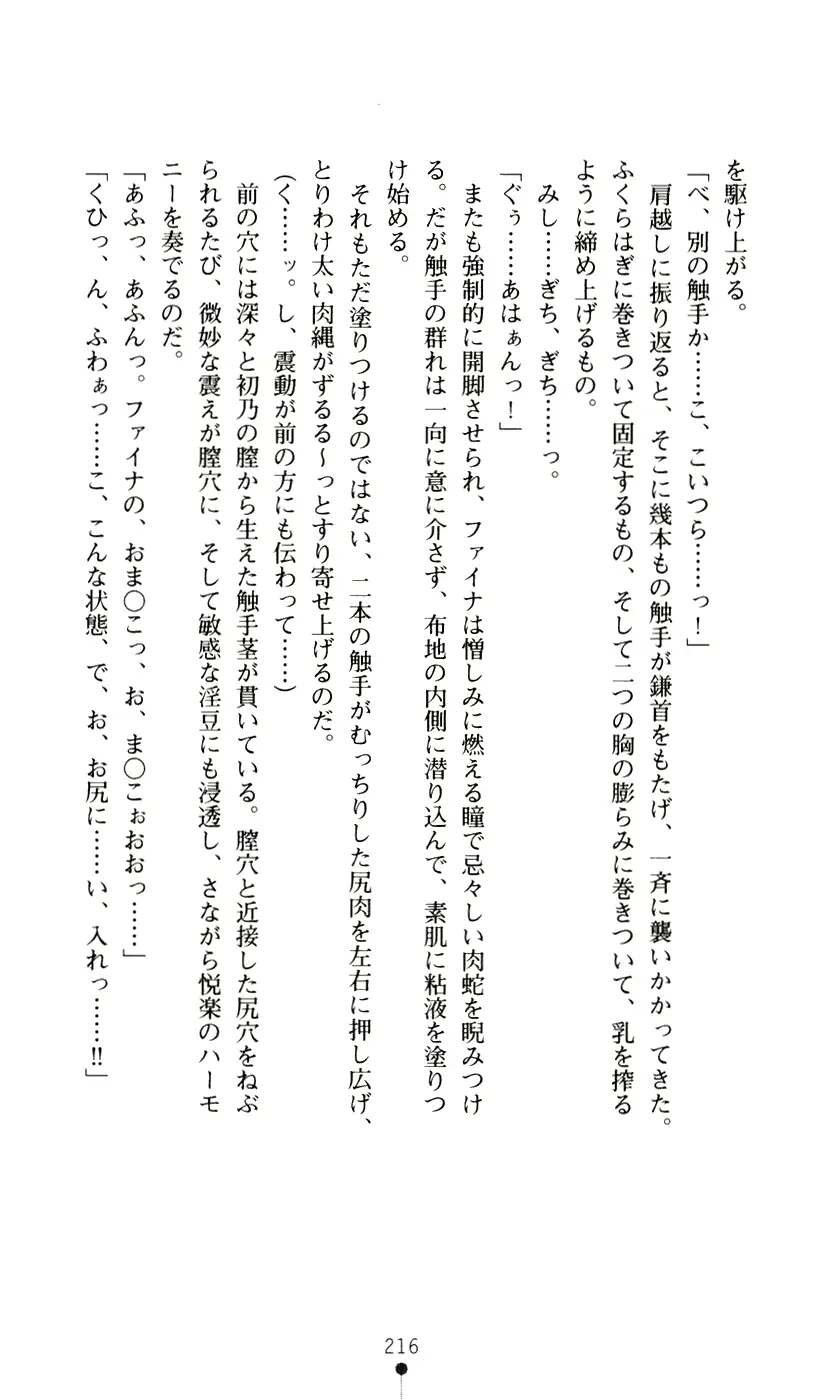 を駆け上がる。
「べ、別の触手か……こ、こいつら……っ！」
肩越しに振り返ると、そこに幾本もの触手が鎌首をもたげ、一斉に襲いかかってきた。
ふくらはぎに巻きついて固定するもの、そして二つの胸の膨らみに巻きついて、乳を搾る
ように締め上げるもの。
みし……ぎち、ぎち……っ。
「ぐぅ……あはぁんっ！」
またも強制的に開脚させられ、ファイナは憎しみに燃える瞳で忌々しい肉蛇を睨みつけ
る。だが触手の群れは一向に意に介さず、布地の内側に潜り込んで、素肌に粘液を塗りつ
け始める。
それもただ塗りつけるのではない、二本の触手がむっちりした尻肉を左右に押し広げ、
とりわけ太い肉縄がずるる～っとすり寄せ上げるのだ。
(く……ッ。し、震動が前の方にも伝わって……)
前の穴には深々と初乃の膣から生えた触手茎が貫いている。膣穴と近接した尻穴をねぶ
られるたび、微妙な震えが膣穴に、そして敏感な淫豆にも浸透し、さながら悦楽のハーモ
ニーを奏でるのだ。
「あふっ、あふんっ。ファイナの、おま〇こっ、お、ま〇こぉおおっ……」
「くひっ、ん、ふわぁっ……こ、こんな状態、で、お、お尻に……い、入れっ……!!」
216